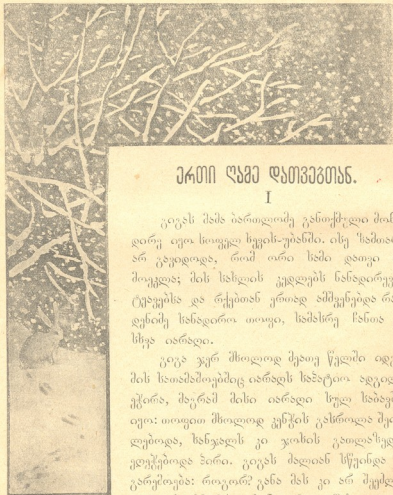 ერთი ღამე დათვებთან.
I
გიგას მამა ბართლომე განთქმული მონა-
დირე იყო სოფელ ხევის-უბანში. ისე ზამთარი
არ გავიდოდა, რომ ორი სამი დათვი არ
მოეკლა; მის სახლის კედლებს ნანადირევის
ტყავებსა და რქებთან ერთად ამშვენებდა რამ-
დენიმე სანადირო თოფი, სამასრე ჩანთა და
სხვა იარაღი.
გიგა ჯერ მხოლოდ მეათე წელში იდგა.
მის სათამაშოებშიც იარაღს საპატიო ადგილი
ეჭირა, მაგრამ მისი იარაღი სულ საბავშვო
იყო: თოფით მხოლოდ კენჭის გასროლა შეიძ-
ლებოდა, ხანჯალს კი ჯოხის გათლაზედაც
ეღუნებოდა პირი. გიგას ძალიან სწყინდა ეს
გარემოება: როგორ? განა მას კი არ შეეძლო